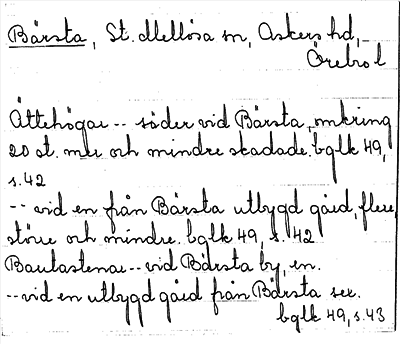 Bärsta, St. Mellösa sn, Askers hd,
Örebro l
Ättehögar -- söder vid Bärsta, omkring
20 st. mer och mindre skadade. bglk 49,
s. 42
-- vid en från Bärsta utbygd gård, flere,
större och mindre. bglk 49, s. 42.
Bautastenar -- vid Bärsta by, en.
-- vid en utbygd gård från Bärsta sex.
bglk 49, s. 43